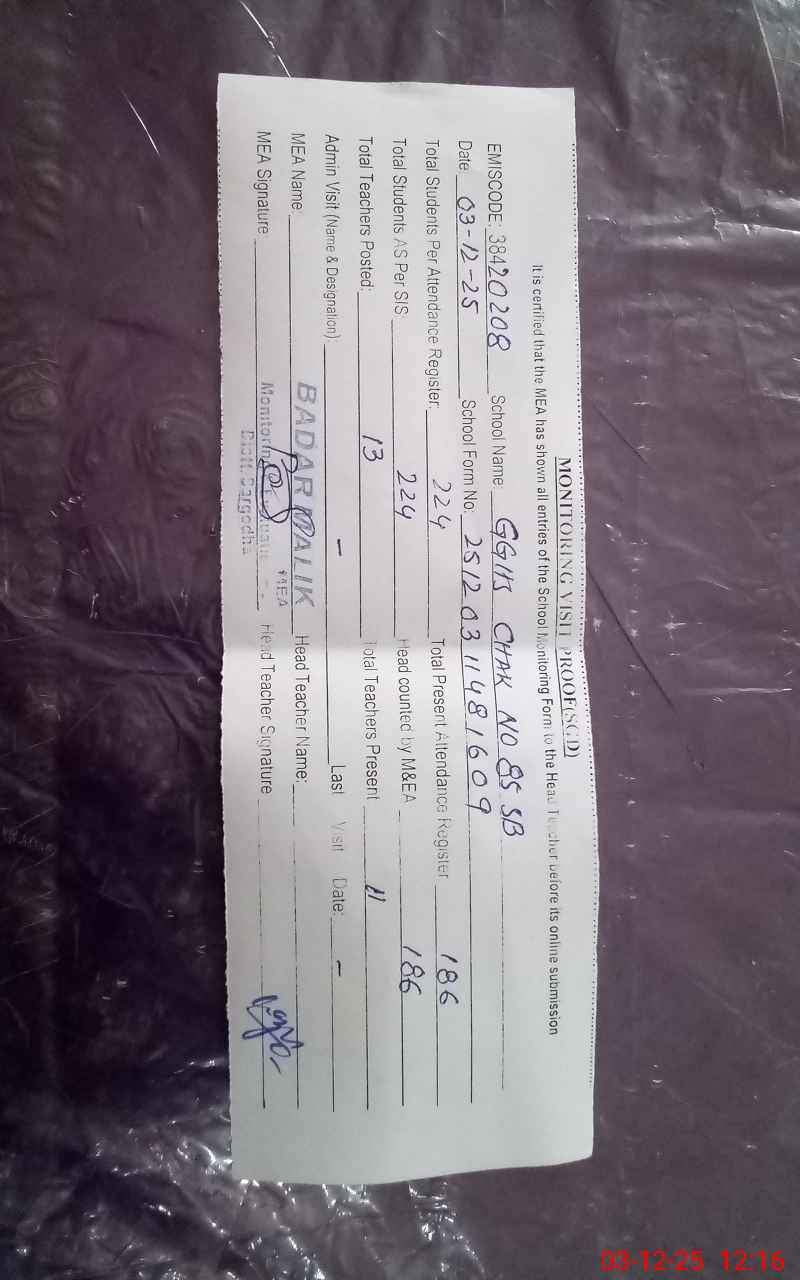 MONITORING VISIT PROOF(SGD)
It is certified that the MEA has shown all entries of the School Monitoring Form to the Head Teacher before its online submission
EMISCODE: 38420208 School Name: GGHS CHAK NO 85 SB
Date: 03-12-25 School Form No: 25120311481609
Total Students Per Attendance Register: 224 Total Present Attendance Register 186
Total Students AS Per SIS: 224 Head counted by M&EA 186
Total Teachers Posted: 13 Total Teachers Present 11
Admin Visit (Name & Designation): - Last Visit Date: -
MEA Name: BADAR MALIK Head Teacher Name:
MEA
MEA Signature Monitoring Head Teacher Signature
Distt. Sargodha
03-12-25 12:16